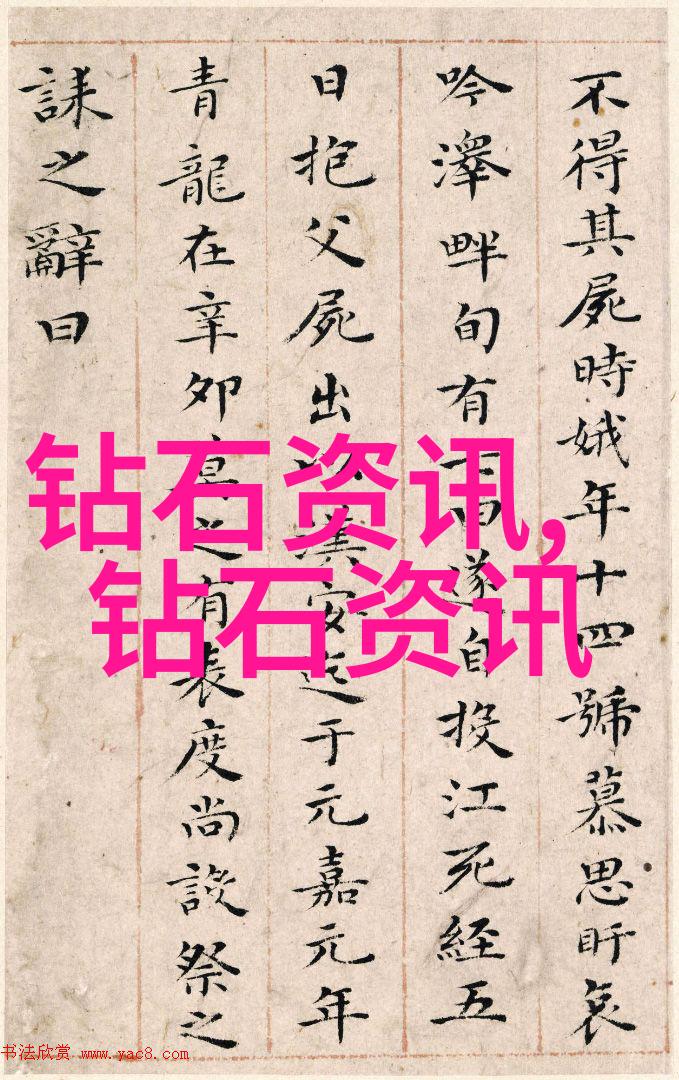 不得其屍時娥年十四號慕思盱哀
吟澤畔旬有日遂自投江死經五
日抱父屍出以漢安迄于元嘉元年
青龍在辛卯莫之有表度尚設祭之
誄之辭曰
钻石资讯,
钻石资讯
书法欣赏 www.yac8.com